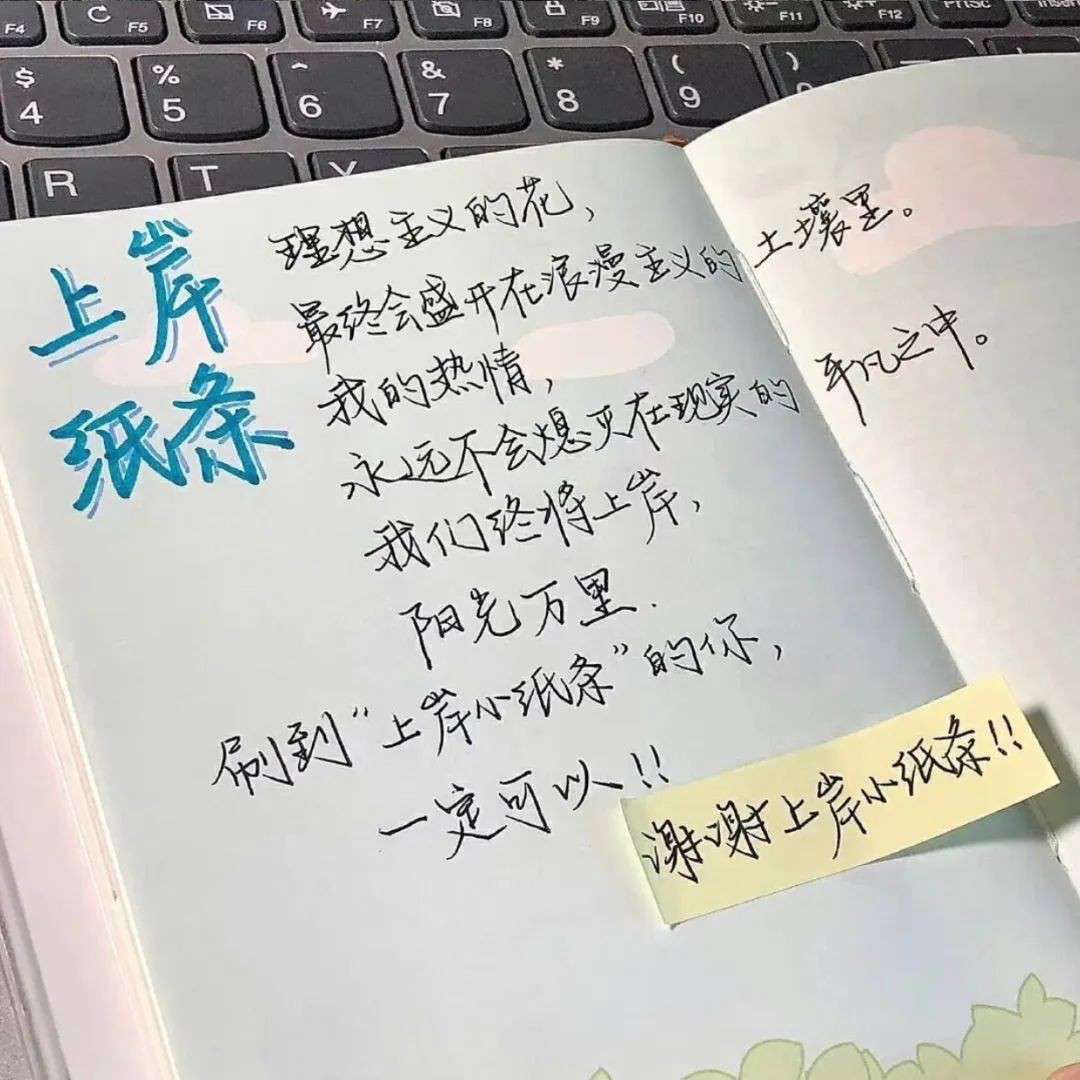 F4
F5
F6
F7
F8
F9
F10
F11
F12
PrtSc
Insert
$
4
%
5
^
6
&
7
*
8
(
9
)
R
T
Y
上岸
纸条
理想主义的花，
最终会盛开在浪漫主义的土壤里。
我的热情，
永远不会熄灭在现实的平凡之中。
我们终将上岸，
阳光万里.
刷到“上岸小纸条”的你，
一定可以!!
谢谢上岸小纸条!!